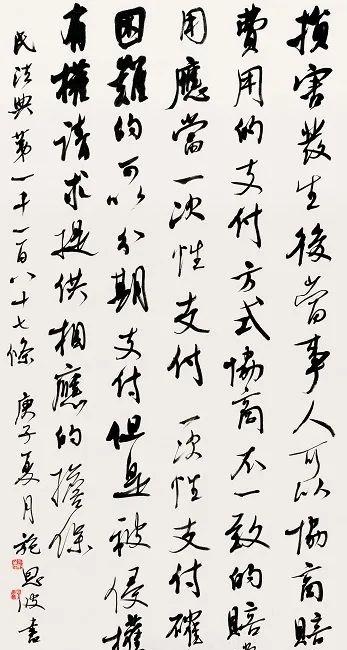 損害發生後當事人可以協商賠
費用的支付方式協商不一致的賠
用應當一次性支付 一次性支付確
困難的可以分期支付但是被侵權
有權請求提供相應的擔保
民法典第一千一百八十七條 庚子夏月施恩波書